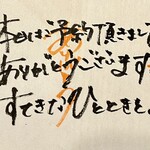 本日はご予約頂きまして
ありがとうございます
すてきなひとときを